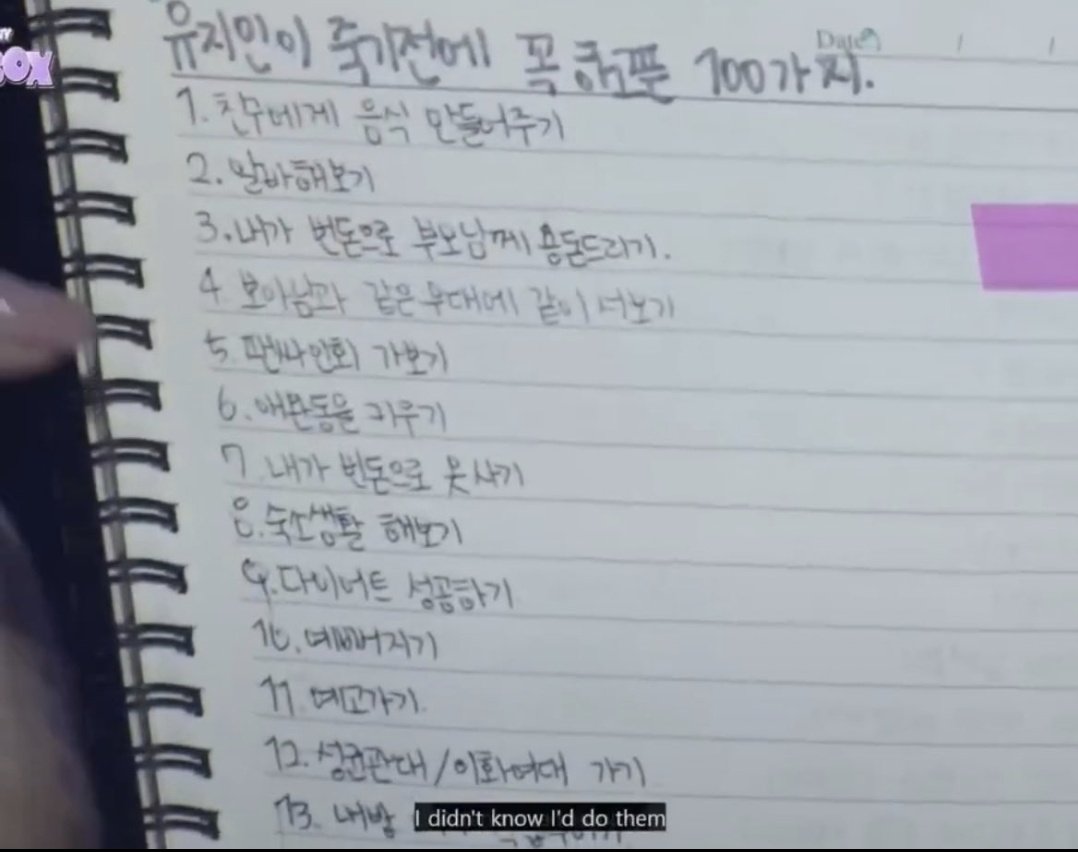 유지민이 죽기전에 꼭 해보픈 100가지.
Date
1. 친구에게 음식 만들어주기
2. 알바해보기
3. 내가 번돈으로 부모님께 용돈드리기.
4 보아님과 같은 무대에 같이 서보기
5. 팬싸인회 가보기
6. 애완동물 키우기
7. 내가 번돈으로 옷사기
8. 숙소생활 해보기
9. 다이어트 성공하기
10. 예뻐지기
11. 예고가기
12. 성균관대/이화여대 가기
13. 내방
I didn't know I'd do them